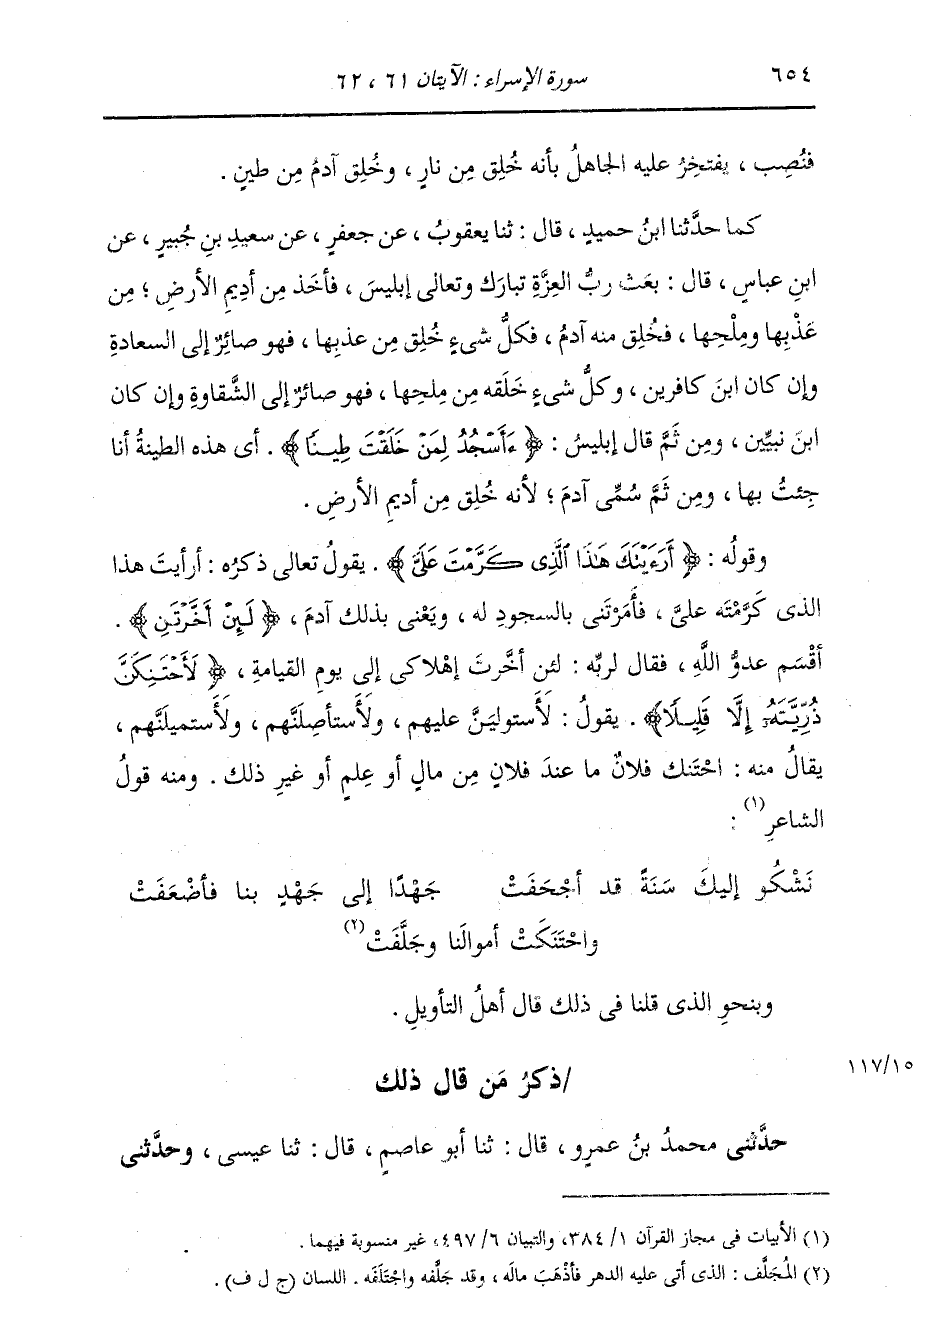 ٦٥٤ سورة الإسراء : الآيتان ٦١ ، ٦٢
فنُصِب ، يفتخِرُ عليه الجاهلُ بأنه خُلِق مِن نارٍ ، وخُلِق آدمُ مِن طينٍ .
كما حدَّثنا ابنُ حميدٍ ، قال : ثنا يعقوبُ ، عن جعفرٍ ، عن سعيدِ بنِ جُبيرٍ ، عن
ابنِ عباسٍ ، قال : بعَث ربُّ العِزَّةِ تبارَك وتعالى إبليسَ ، فأخَذ مِن أديمِ الأرضِ ؛ مِن
عَذْبِها ومِلْحِها ، فخُلِق منه آدمُ ، فكلُّ شىءٍ خُلِق مِن عذبِها ، فهو صائِرٌ إلى السعادةِ
وإن كان ابنَ كافرين ، وكلُّ شىءٍ خَلَقه مِن ملحِها ، فهو صائرٌ إلى الشَّقاوةِ وإن كان
ابنَ نبيِّين ، ومِن ثَمَّ قال إبليسُ : ﴿ ءَأَسْجُدُ لِمَنْ خَلَقْتَ طِينًا ﴾ . أى هذه الطينةُ أنا
جِئتُ بها ، ومِن ثَمَّ سُمِّى آدمَ ؛ لأنه خُلِق مِن أديمِ الأرضِ .
وقولُه : ﴿ أَرَءَيْتَكَ هَٰذَا ٱلَّذِى كَرَّمْتَ عَلَىَّ ﴾ . يقولُ تعالى ذكرُه : أرأيتَ هذا
الذى كَرَّمْتَه علىَّ ، فأَمَرْتَنى بالسجودِ له ، ويَعْنى بذلك آدمَ ، ﴿ لَئِنْ أَخَّرْتَنِ ﴾ .
أقْسَم عدوُّ اللَّهِ ، فقال لربِّه : لئن أخَّرتَ إهْلاكى إلى يومِ القيامةِ ، ﴿ لَأَحْتَنِكَنَّ
ذُرِّيَّتَهُۥ إِلَّا قَلِيلًا ﴾ . يقولُ : لَأَستولِيَنَّ عليهم ، ولَأَستأصِلَنَّهم ، ولَأَستميلَنَّهم ،
يقالُ منه : احْتَنك فلانٌ ما عندَ فلانٍ مِن مالٍ أو عِلمٍ أو غيرِ ذلك . ومنه قولُ
الشاعرِ (١) :
نَشْكُو إليكَ سَنَةً قد أجْحَفَتْ جَهْدًا إلى جَهْدٍ بنا فأضْعَفَتْ
واحْتَنَكَتْ أموالَنا وجَلَّفَتْ (٢)
وبنحوِ الذى قلنا فى ذلك قال أهلُ التأويلِ .
١١٧/١٥
/ذكرُ مَن قال ذلك
حدَّثنى محمدُ بنُ عمرٍو ، قال : ثنا أبو عاصمٍ ، قال : ثنا عيسى ، وحدَّثنى
(١) الأبيات فى مجاز القرآن ١/ ٣٨٤، والتبيان ٦/ ٤٩٧، غير منسوبة فيهما .
(٢) المُجَلَّف : الذى أتى عليه الدهر فأذْهَبَ مالَه ، وقد جَلَّفه واجْتَلَفَه . اللسان (ج ل ف) .